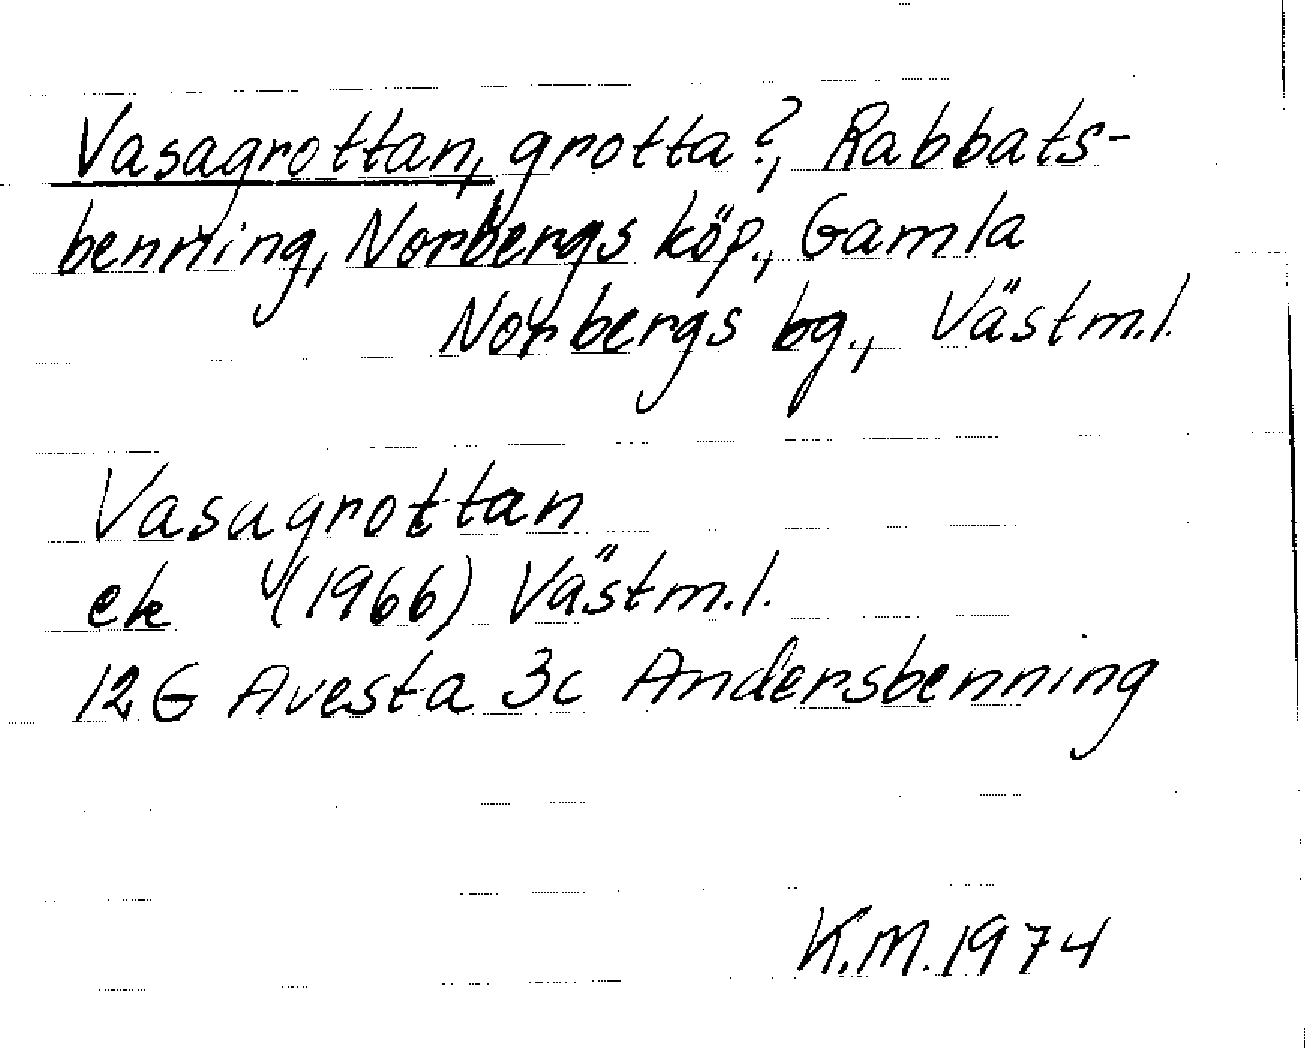 Vasagrottan, grotta?, Rabbats-
benning, Norbergs köp., Gamla
Norbergs bg., Västm.l.
Vasagrottan
ek (1966) Västm.l.
12G Avesta 3c Andersbenning
K.M. 1974